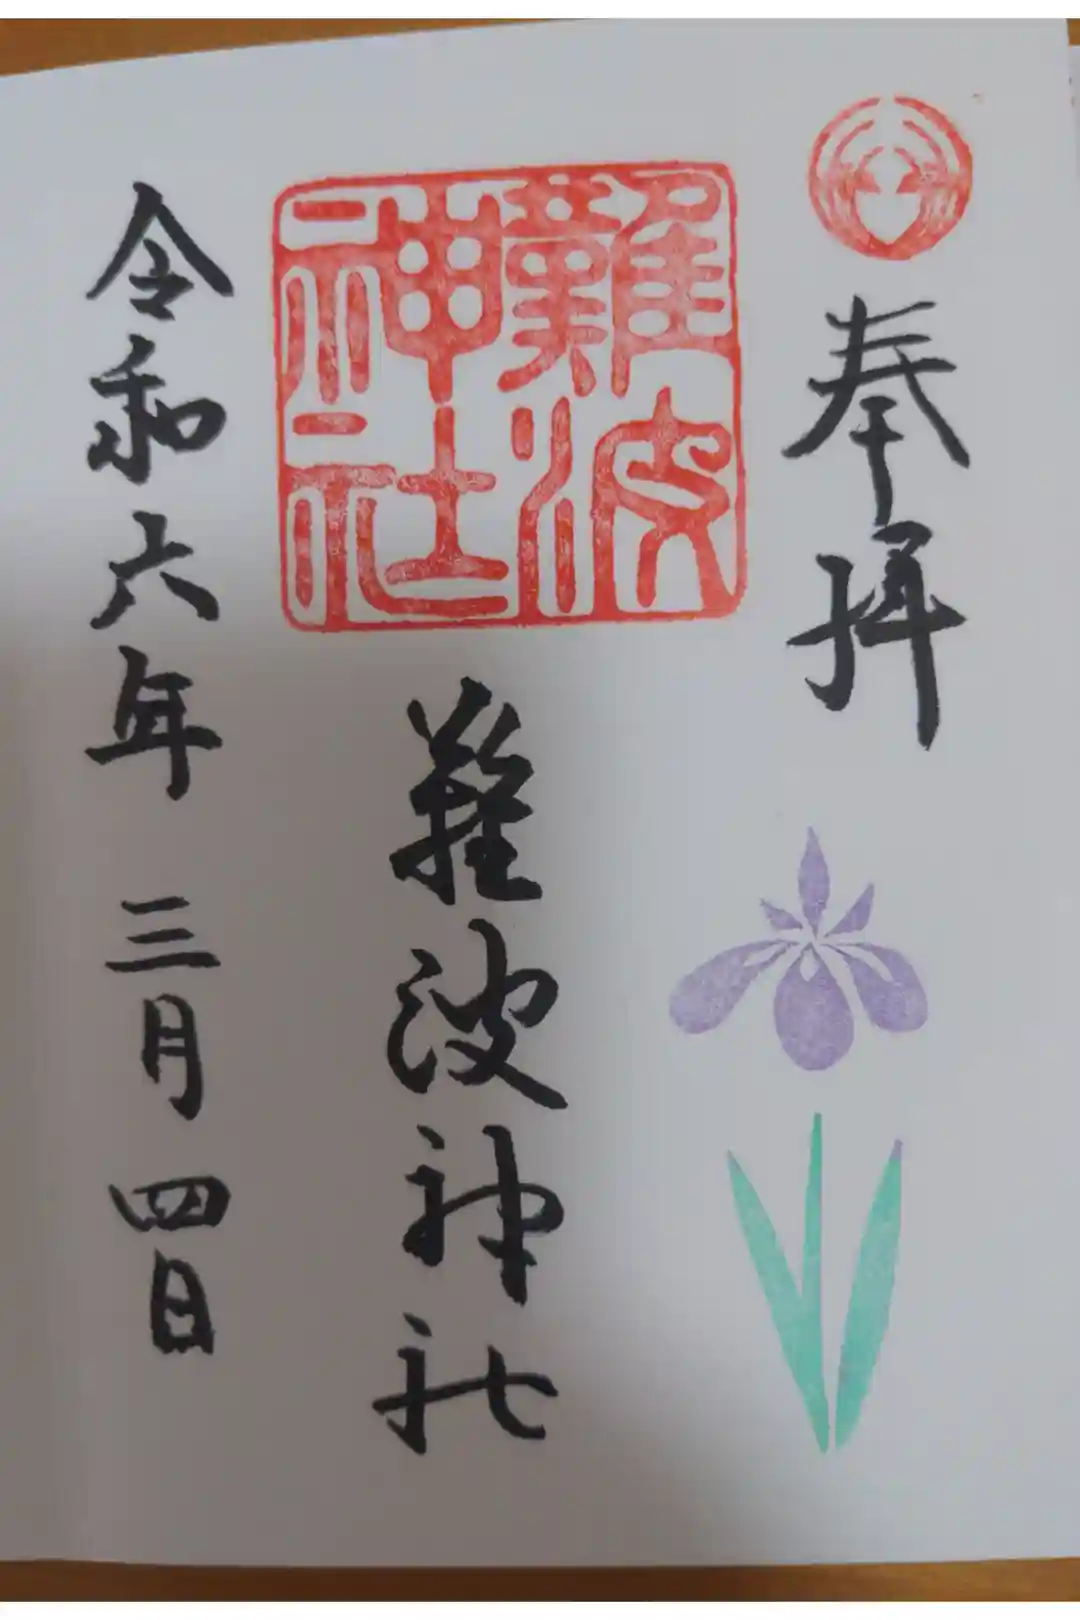 奉拝
難波神社
難波神社
令和六年三月四日